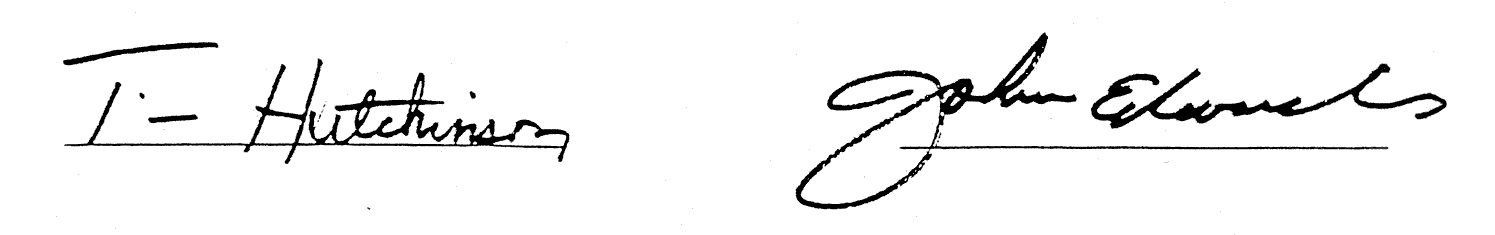 Tim Hutchinson John Edwards